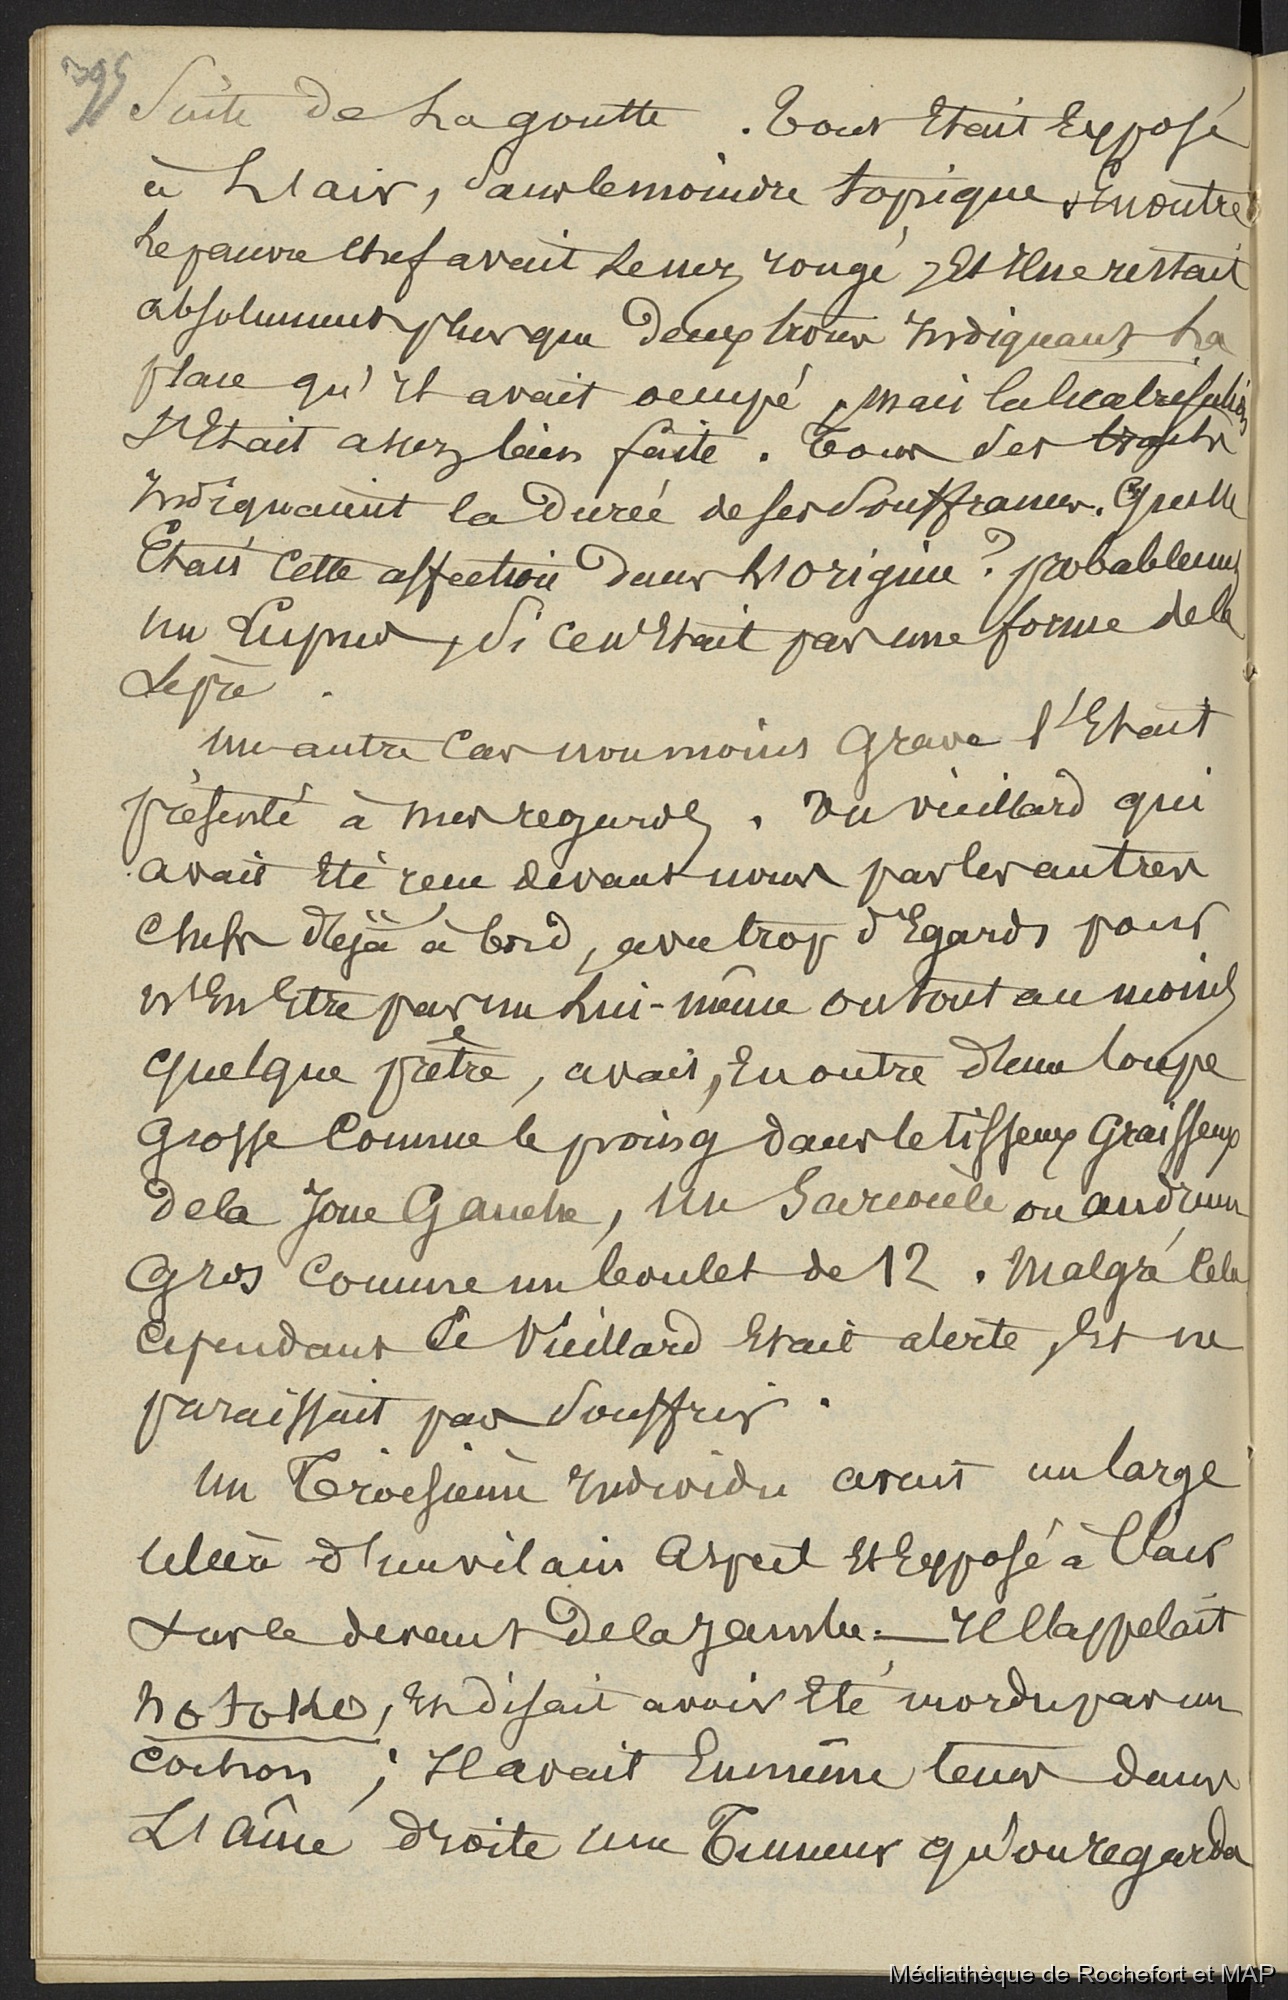 395
Suite de La goutte. Tout Etait Exposé
à L'air, Sans le moindre topique. En outre
Le pauvre chef avait Le nez rongé, Et Il ne restait
absolument plus que Deux trous Indiquant La
place qu'Il avait occupé, mais la cicatrisation
S'Etait assez bien faite. Tous des
Indiquaient la Durée de ses Souffrances. Quelle
Etait Cette affection Dans L'origine ? probablement
un Lupus, Si ce n'Etait pas une forme de la
Lèpre.
un autre Cas non moins Grave s'Etait
présenté à mes regards. Un vieillard qui
avait Eté reçu devant nous par les autres
chefs déjà à bord, avec trop d'Egards pour
n'En Etre pas un Lui-même ou tout au moins
quelque prêtre, avait, En outre d'une loupe
Grosse Comme le poing dans le tisseux Graisseux
De la Joue Gauche, un Sarcocèle ou andrum
Gros Comme un boulet de 12. Malgré Cela
Cependant Ce Vieillard Etait alerte, Et ne
paraissait pas Souffrir.
Un Troisième Individu avait un large
ulcère d'un vilain Aspect Et Exposé à l'air
sur le devant De la Jambe. — Il S'appelait
hotoke, Et disait avoir Eté mordu par un
Cochon ; Il avait En même tems dans
L'aîne droite une Tumeur qu'on regarda
Médiathèque de Rochefort et MAP